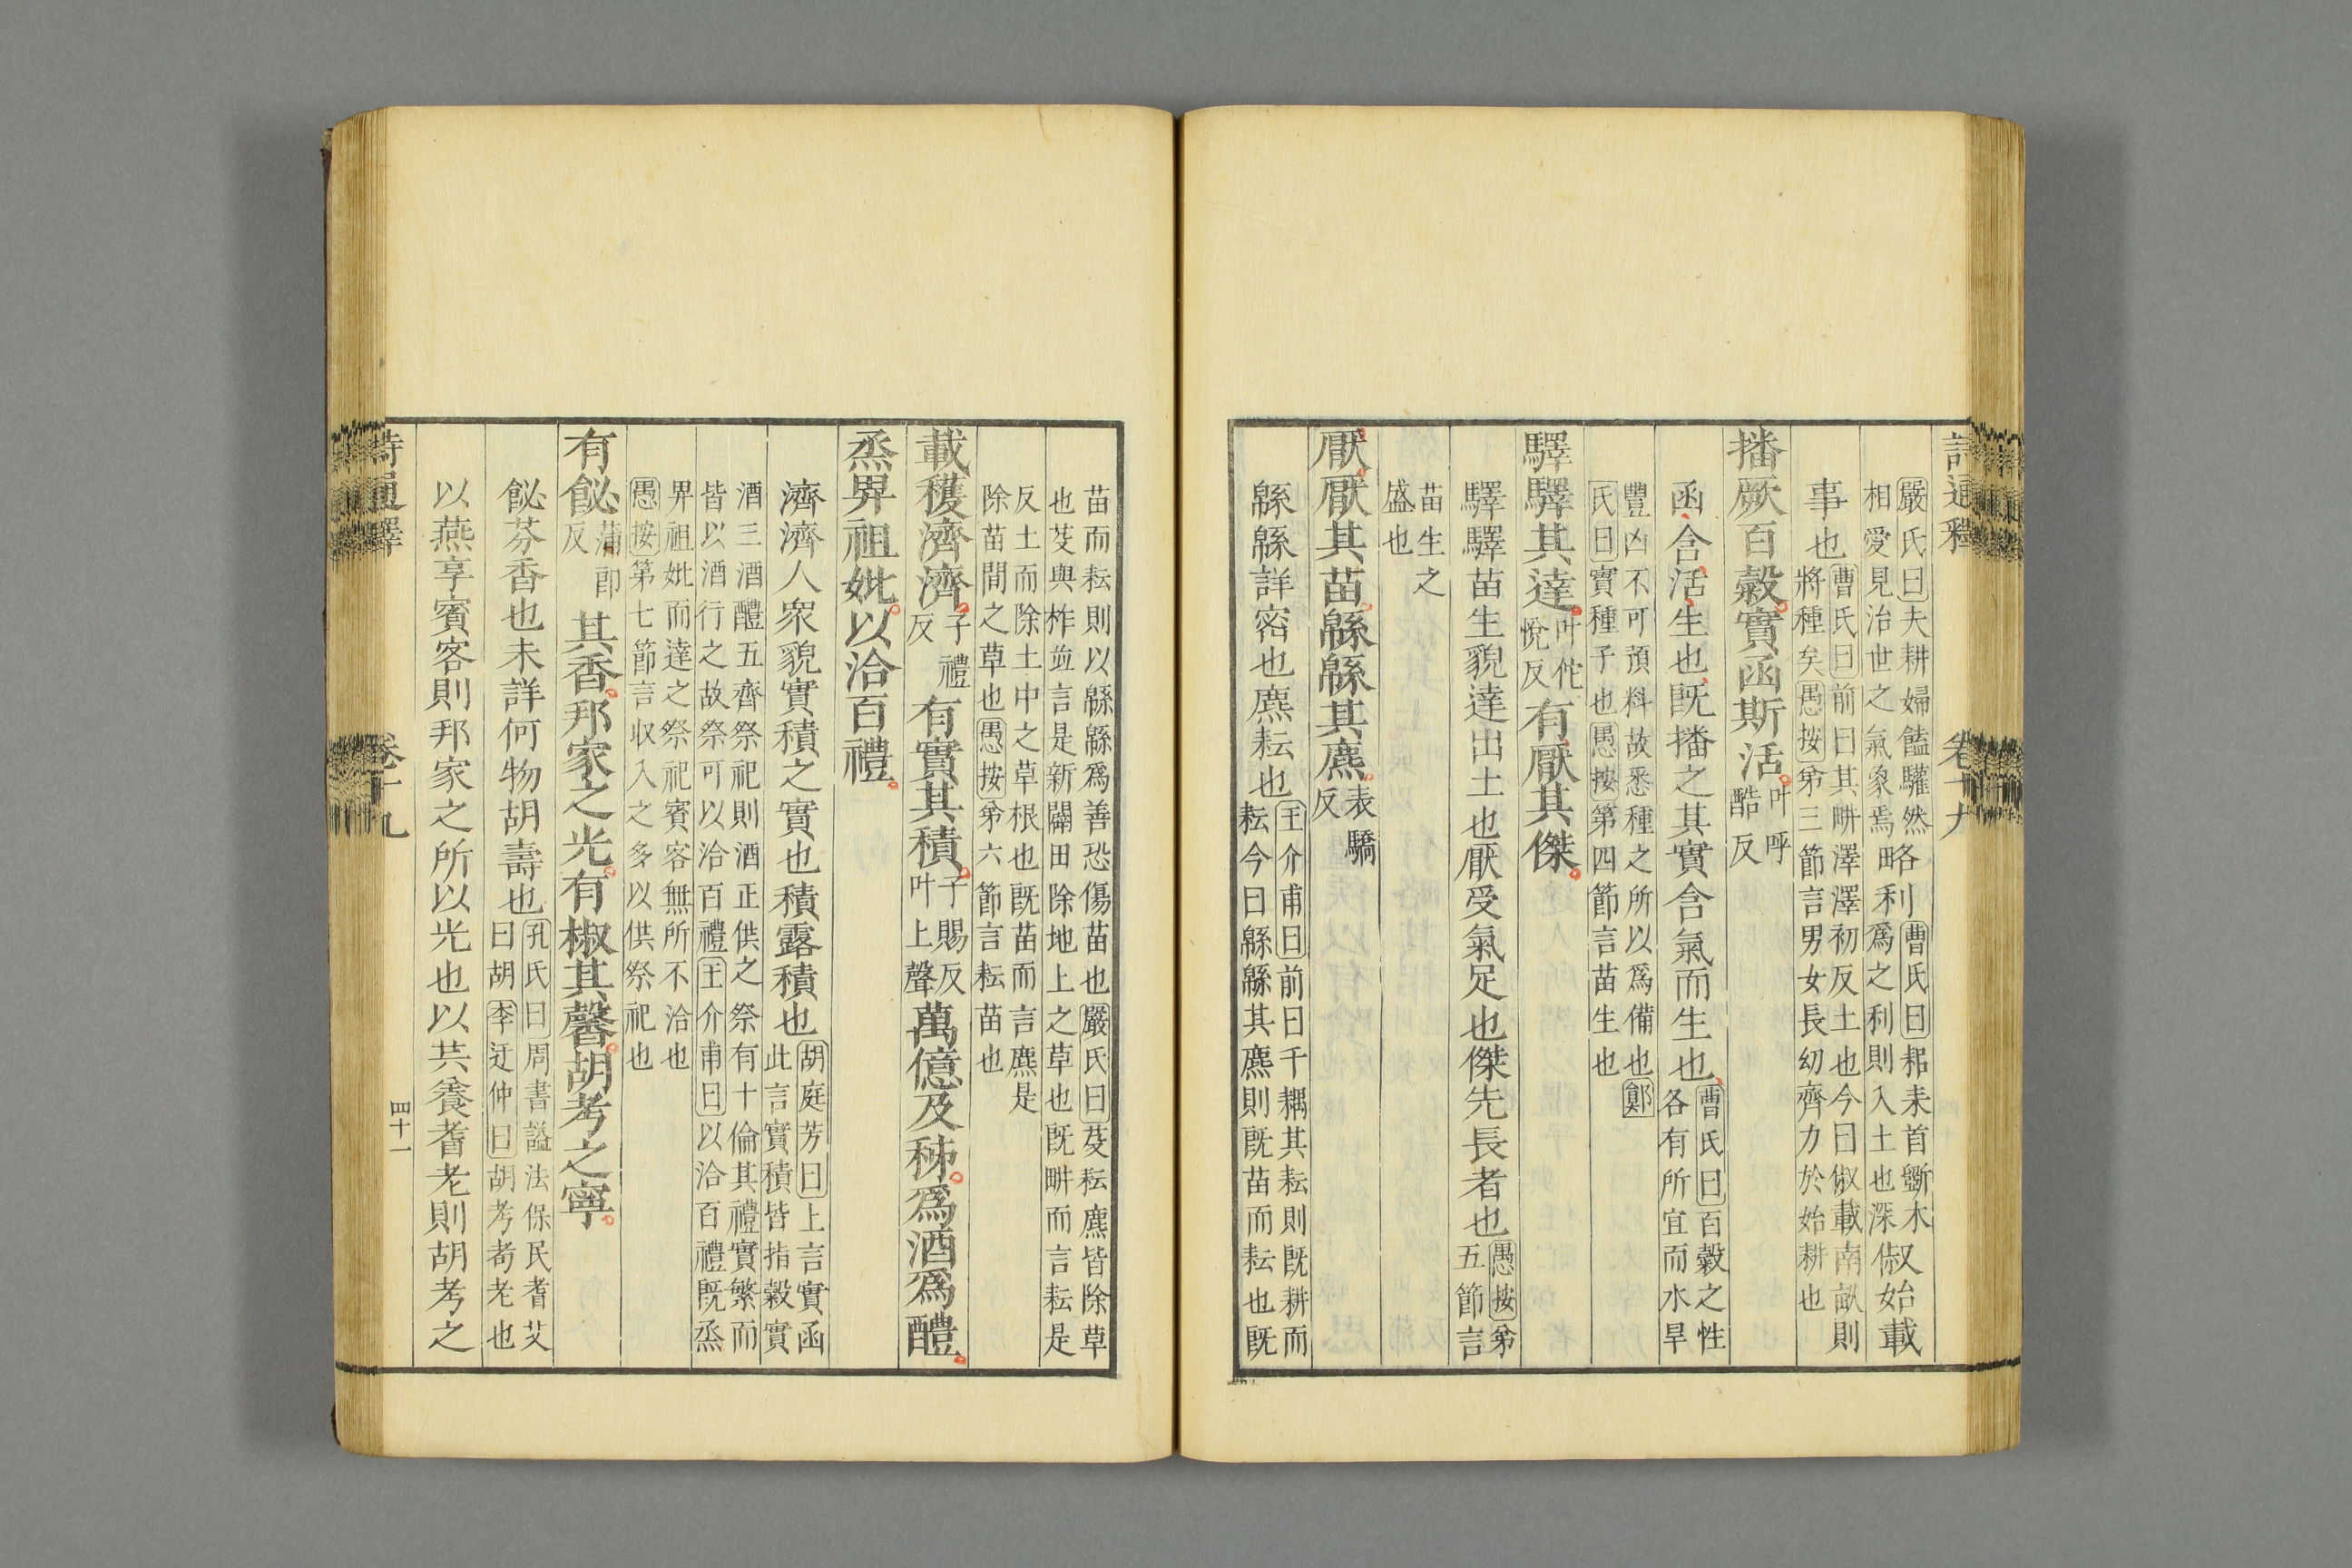 詩通釋 卷十九
嚴氏曰夫耕婦饁驩然
相愛見治世之氣象焉
略利
曹氏曰耜耒首斲木
爲之利則入土也深
俶始載
事也
曹氏曰前曰其畊澤澤初反土也今曰俶載南畝則
將種矣愚按第三節言男女長幼齊力於始耕也
播厥百穀實函斯活
叶呼
酷反
函含活生也旣播之其實含氣而生也
曹氏曰百穀之性
各有所宜而水旱
豐凶不可預料故悉種之所以爲備也鄭
氏曰實種子也愚按第四節言苗生也
驛驛其達
叶佗
悅反
有厭其傑
驛驛苗生貌達出土也厭受氣足也傑先長者也
愚按第
五節言
苗生之
盛也
厭厭其苗緜緜其麃
表驕
反
緜緜詳密也麃耘也
王介甫曰前曰千耦其耘則旣耕而
耘今曰緜緜其麃則旣苗而耘也旣
苗而耘則以緜緜爲善恐傷苗也嚴氏曰芟耘麃皆除草
也芟與柞竝言是新闢田除地上之草也旣畊而言耘是
反土而除土中之草根也旣苗而言麃是
除苗間之草也愚按第六節言耘苗也
載穫濟濟
子禮
反
有實其積
子賜反
叶上聲
萬億及秭爲酒爲醴
烝畀祖妣以洽百禮
濟濟人衆貌實積之實也積露積也
胡庭芳曰上言實函
此言實積皆指穀實
酒三酒醴五齊祭祀則酒正供之祭有十倫其禮實繁而
皆以酒行之故祭可以洽百禮王介甫曰以洽百禮旣烝
畀祖妣而達之祭祀賓客無所不洽也
愚按第七節言収入之多以供祭祀也
有飶
蒲卽
反
其香邦家之光有椒其馨胡考之寧
飶芬香也未詳何物胡壽也
孔氏曰周書謚法保民耆艾
曰胡李迂仲曰胡考耇老也
以燕享賓客則邦家之所以光也以共養耆老則胡考之
詩通釋 卷十九 四十一